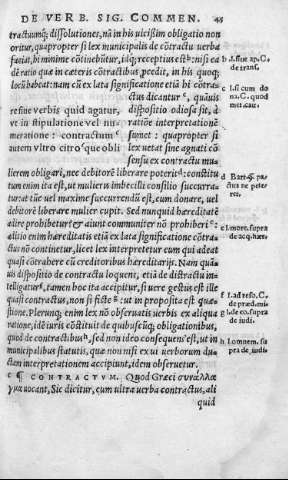 DE VERB. SIG. COMMEN. 45
tractuumq; dissolutiones, nā in his uicissim obligatio non
oritur, quapropter si lex municipalis de cōtractu uerba
faciat, bi minime cōtinebūtur, idq; receptius est b: nisi ea
dē ratio quæ in cæteris cōtractibus pcedit, in his quoq;
locū habeat: nam cū ex lata significatione etiā bi cōtra-
ctus dicantur c, quāuis
refiue verbis quid agatur, dispositio odiosa sit, ad
vt in stipulatione vel in- ratiōe interpretationē
meratione : contractum c sumet : quapropter si
autem vltro citroq́ue obli lex uetat sine agnati cō
sensu ex contractu mu-
lierem obligari, nec debitorē liberare poterit d: constitu
tum enim ita est, ut mulieris imbecilli consilio succurra-
tur, at tūc uel maxime succurrendū est, cum donare, uel
debitorē liberare mulier cupit. Sed nunquid hæreditatē
adire prohibetur? & aiunt communiter nō prohiberi e:
aditio enim hæreditatis etsi ex lata significatione cōtra-
ctu nō contineatur, licet lex interpretetur eum qui adeat
quasi cōtrahere cū creditoribus hæreditarijs. Nam quā-
uis dispositio de contractu loquens, etiā de distractu in-
telligatur f, tamen hoc ita accipitur, si uere gestus est ille
quasi contractus, non si ficte g: ut in proposita est quæ-
stione. Plerunq; enim lex nō obseruatis verbis ex aliqua
ratione, idē iuris cōstituit de quibuscūq; obligationibus,
quod de contractibus h, sed non ideo consequens est, ut in
municipalibus statutis, quæ non nisi ex ui uerborum du-
ctam interpretationem accipiunt, idem obseruetur.
c ¶ CONTRACTVM. Quod Græci συνάλλα
γμα uocant, Sic dicitur, cum ultra uerba contractus, ali
quid
C.
de trans.
c l. si cum do
na. C. quod
met. cau.
d
ctus ne pete-
ret.
e
q. hære.
f l. ad reso. C.
de præd. mi
g l. de eo. supra
de iudi.
h l. omnem. su
pra de iudis